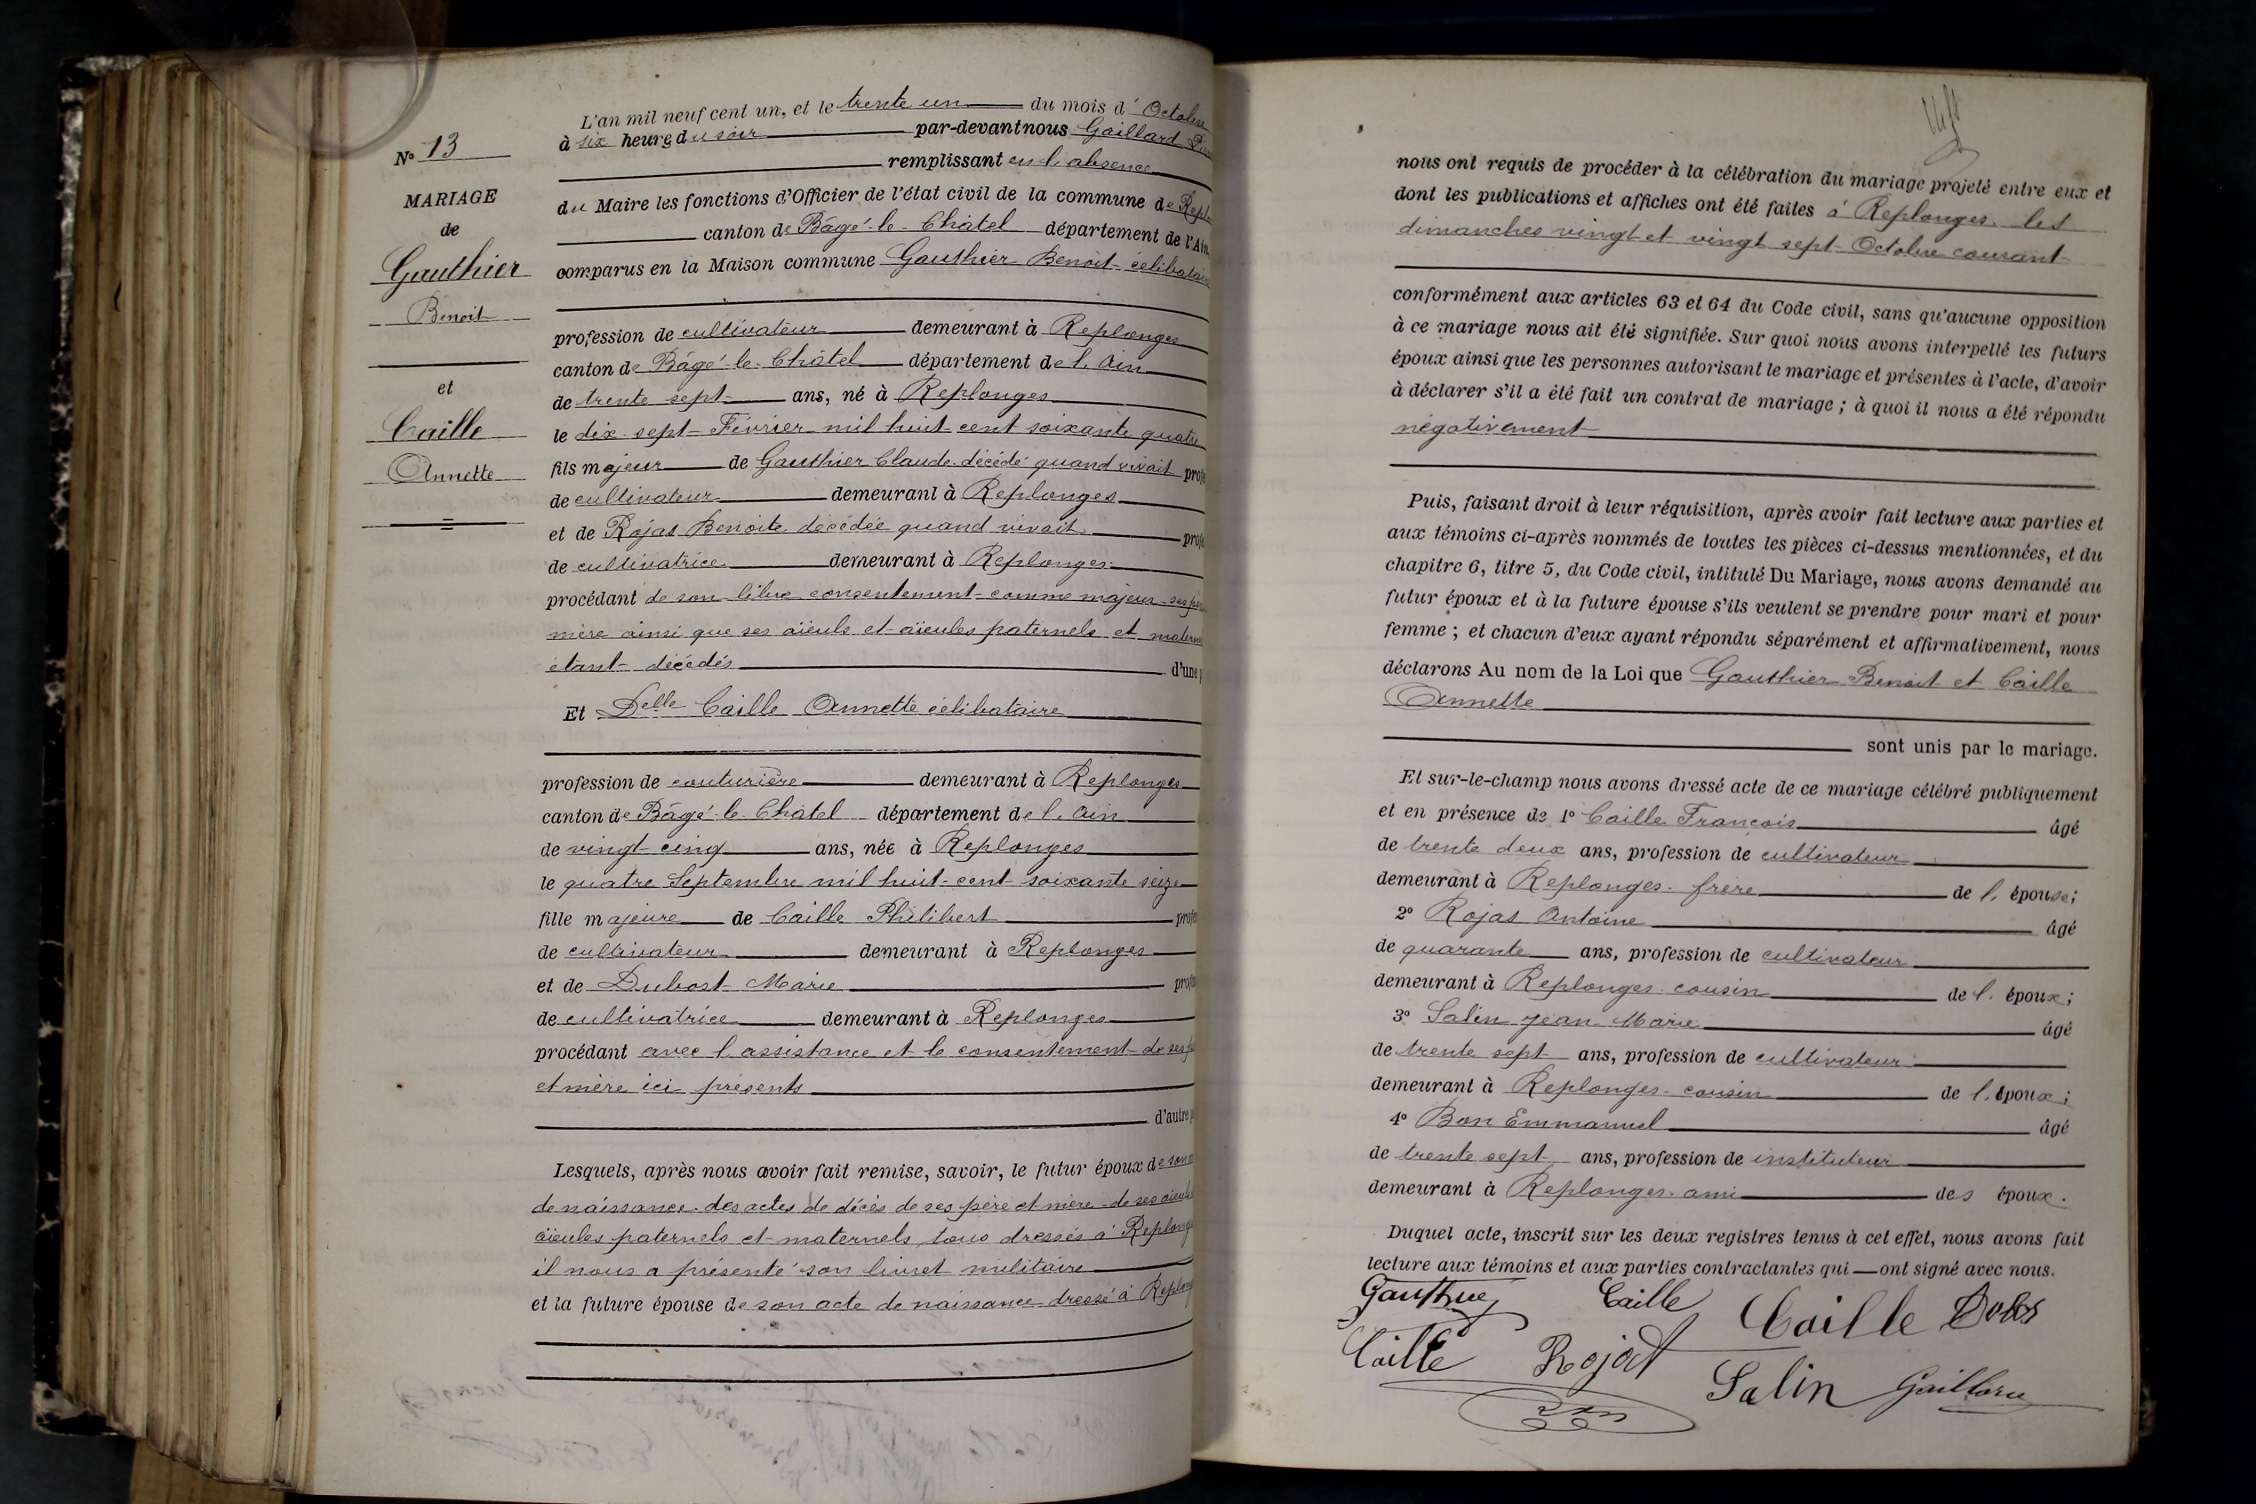 N° 13
MARIAGE
de
Gauthier
Benoit
et
Caille
Annette
L'an mil neuf cent un, et le trente un du mois d' Octobre
à six heures du soir par-devant nous Gaillard
remplissant en l'absence
du Maire les fonctions d'Officier de l'état civil de la commune de Repl
canton de Bâgé-le-Châtel département de l'Ain,
comparus en la Maison commune Gauthier Benoit célibataire
profession de cultivateur demeurant à Replonges
canton de Bâgé-le-Châtel département de l'Ain
de trente sept ans, né à Replonges
le dix-sept Février mil huit cent soixante quatre
fils majeur de Gauthier Claude décédé quand vivait profe
de cultivateur demeurant à Replonges
et de Rojas Benoite décédée quand vivait profe
de cultivatrice demeurant à Replonges
procédant de son libre consentement comme majeur ses
mère ainsi que ses aïeuls et aïeules paternels et matern
étant décédés d'une p
Et Delle Caille Annette célibataire
profession de couturière demeurant à Replonges
canton de Bâgé-le-Châtel département de l'Ain
de vingt cinq ans, née à Replonges
le quatre Septembre mil huit cent soixante seize
fille majeure de Caille Philibert profe
de cultivateur demeurant à Replonges
et de Dubost Marie profe
de cultivatrice demeurant à Replonges
procédant avec l'assistance et le consentement de ses
et mère ici présents
d'autre p
Lesquels, après nous avoir fait remise, savoir, le futur époux de son
de naissance des actes de décès de ses père et mère de ses aïeuls
aïeules paternels et maternels tous dressés à Replong
il nous a présenté son livret militaire
et la future épouse de son acte de naissance dressé à Replong
nous ont requis de procéder à la célébration du mariage projeté entre eux et
dont les publications et affiches ont été faites à Replonges les
dimanches vingt et vingt sept Octobre courant
conformément aux articles 63 et 64 du Code civil, sans qu'aucune opposition
à ce mariage nous ait été signifiée. Sur quoi nous avons interpellé les futurs
époux ainsi que les personnes autorisant le mariage et présentes à l'acte, d'avoir
à déclarer s'il a été fait un contrat de mariage ; à quoi il nous a été répondu
négativement
Puis, faisant droit à leur réquisition, après avoir fait lecture aux parties et
aux témoins ci-après nommés de toutes les pièces ci-dessus mentionnées, et du
chapitre 6, titre 5, du Code civil, intitulé Du Mariage, nous avons demandé au
futur époux et à la future épouse s'ils veulent se prendre pour mari et pour
femme ; et chacun d'eux ayant répondu séparément et affirmativement, nous
déclarons Au nom de la Loi que Gauthier Benoit et Caille
Annette
sont unis par le mariage.
Et sur-le-champ nous avons dressé acte de ce mariage célébré publiquement
et en présence de 1° Caille François âgé
de trente deux ans, profession de cultivateur
demeurant à Replonges frère de l'épouse;
2° Rojas Antoine âgé
de quarante ans, profession de cultivateur
demeurant à Replonges cousin de l'époux;
3° Salin Jean Marie âgé
de trente sept ans, profession de cultivateur
demeurant à Replonges cousin de l'époux;
4° Bon Emmanuel âgé
de trente sept ans, profession de instituteur
demeurant à Replonges ami des époux.
Duquel acte, inscrit sur les deux registres tenus à cet effet, nous avons fait
lecture aux témoins et aux parties contractantes qui ont signé avec nous.
Gauthier Caille Caille
Caille Rojat Salin Gaillard